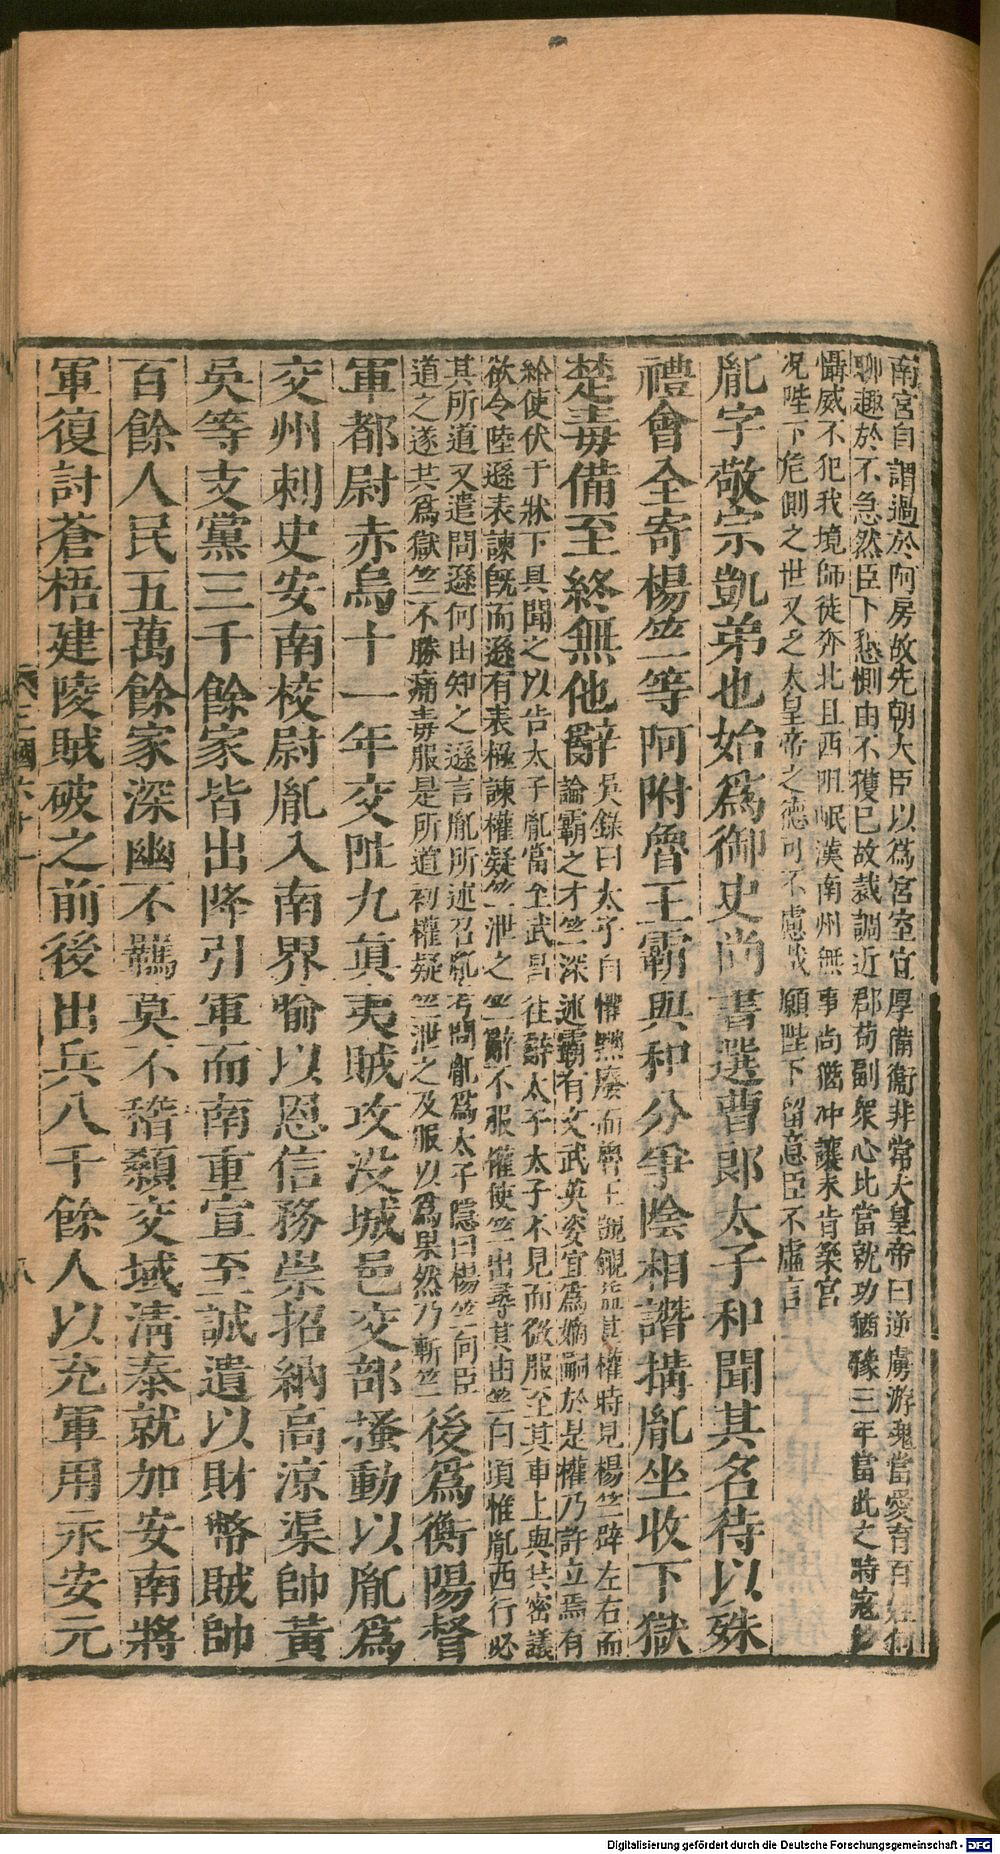 南宮自謂過於阿房故先朝大臣以爲宮室宜厚備衞非常大皇帝曰逆虜游魂當愛育百姓何
聊趣於不急然臣下懇惻由不獲已故裁調近郡苟副衆心比當就功猶豫三年當此之時寇鈔
懾威不犯我境師徒奔北且西阻岷漢南州無事尚猶冲讓未肯築宮
况陛下危側之世又乏大皇帝之德可不慮哉願陛下留意臣不虛言
胤字敬宗凱弟也始爲御史尚書選曹郎太子和聞其名待以殊
禮會全寄楊竺等阿附魯王霸與和分爭陰相譖搆胤坐收下獄
楚毒備至終無他辭
吳錄曰太子自懼黜廢而魯王覬覦益甚權時見楊竺辟左右而
論霸之才竺深述霸有文武英姿宜爲嫡嗣於是權乃許立焉有
給使伏于牀下具聞之以告太子胤當至武昌往辭太子太子不見而微服至其車上與共密議
欲令陸遜表諫旣而遜有表極諫權疑竺泄之竺辭不服權使竺出尋其由竺白頃惟胤西行必
其所道又遣問遜何由知之遜言胤所述召胤考問胤爲太子隱曰楊竺向臣
道之遂共爲獄竺不勝痛毒服是所道初權疑竺泄之及服以爲果然乃斬竺
後爲衡陽督
軍都尉赤烏十一年交阯九眞夷賊攻没城邑交部搔動以胤爲
交州刺史安南校尉胤入南界喻以恩信務崇招納高涼渠帥黃
吳等支黨三千餘家皆出降引軍而南重宣至誠遺以財幣賊帥
百餘人民五萬餘家深幽不羈莫不稽顙交域淸泰就加安南將
軍復討蒼梧建陵賊破之前後出兵八千餘人以充軍用永安元
Digitalisierung gefördert durch die Deutsche Forschungsgemeinschaft - DFG